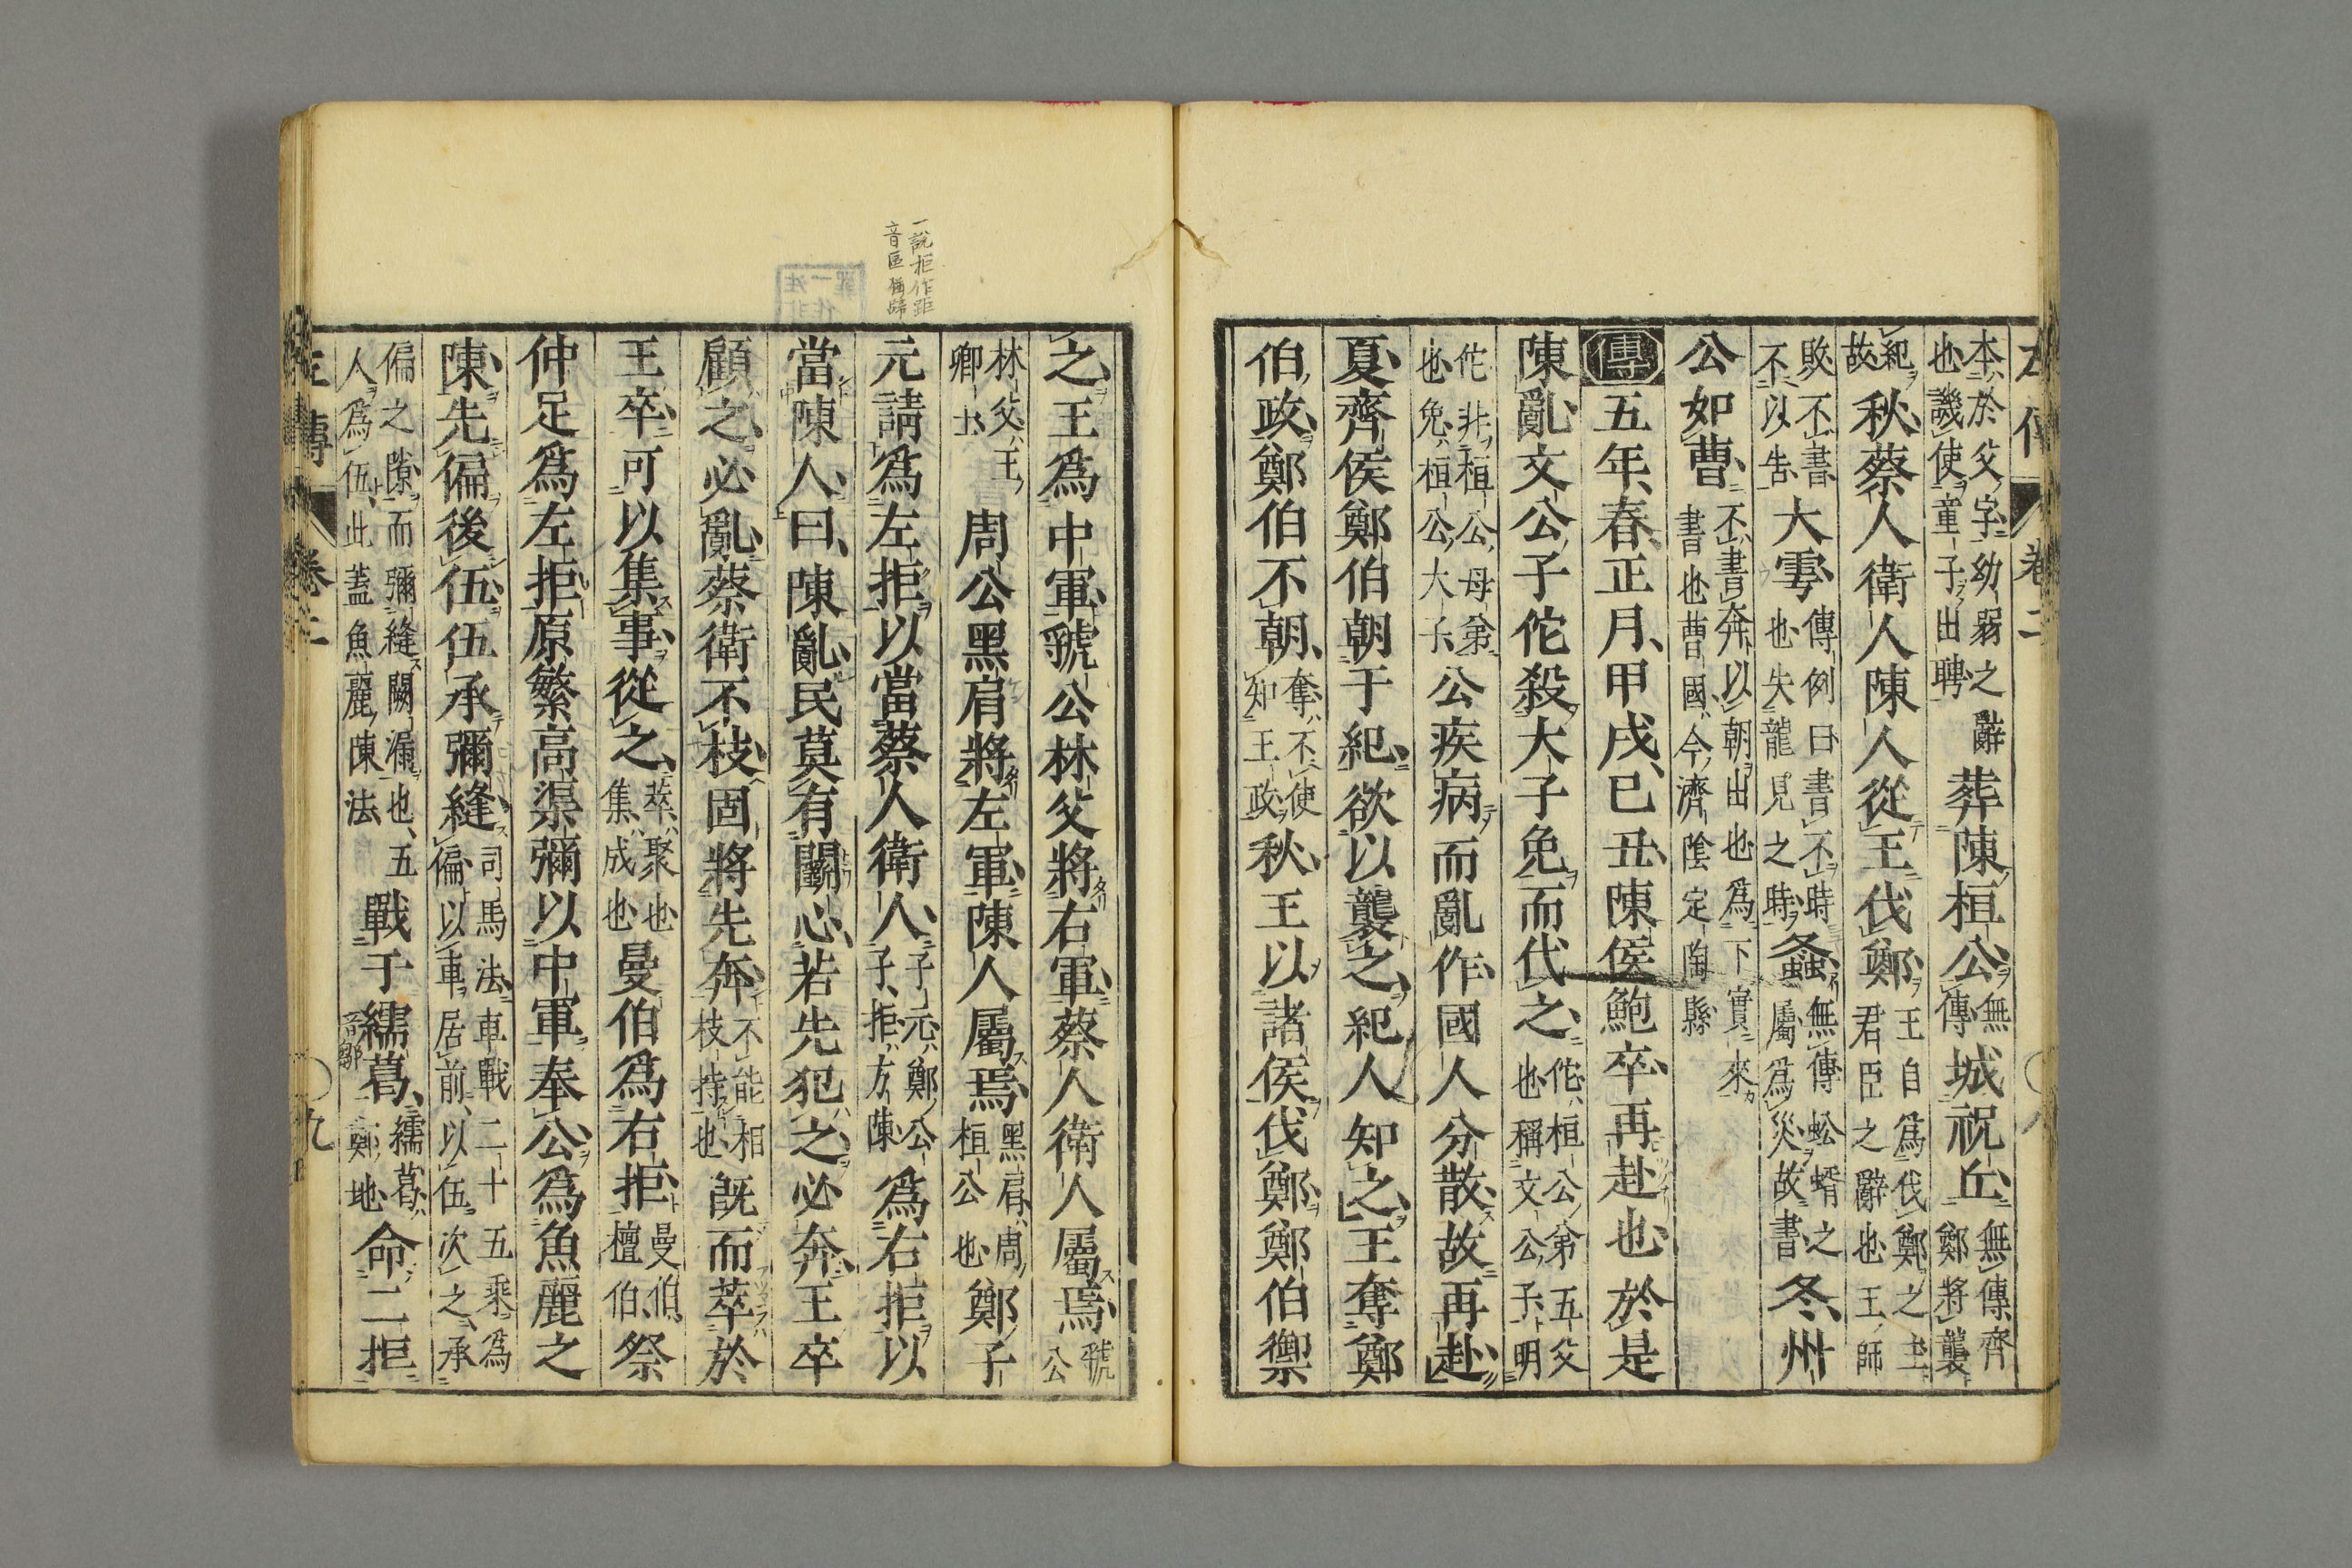 左傳 卷二 八
本於父字幼弱之辭也譏使童子出聘葬陳桓公無傳城祝丘無傳齊鄭將襲
紀故秋蔡人衛人陳人從王伐鄭王自爲伐鄭之主君臣之辭也王師
敗不書不以告大雩傳例曰書不時也失龍見之時螽無傳蚣蝑之屬爲災故書冬州
公如曹不書奔以朝出也爲下實來書也曹國今濟陰定陶縣
傳五年春正月甲戌己丑陳侯鮑卒再赴也於是
陳亂文公子佗殺大子免而代之佗桓公弟五父也稱文公子明
佗非桓公母弟也免桓公大子公疾病而亂作國人分散故再赴
夏齊侯鄭伯朝于紀欲以襲之紀人知之王奪鄭
伯政鄭伯不朝奪不使知王政秋王以諸侯伐鄭鄭伯禦
一說拒作距
音區
之王爲中軍虢公林父將右軍蔡人衛人屬焉虢公
林父王卿士周公黑肩將左軍陳人屬焉黑肩周桓公也鄭子
元請爲左拒以當蔡人衛人子元鄭公子拒方陳爲右拒以
當陳人曰陳亂民莫有鬭心若先犯之必奔王卒
顧之必亂蔡衛不枝固將先奔不能相枝持也既而萃於
王卒可以集事從之萃聚也集成也曼伯爲右拒曼伯檀伯祭
仲足爲左拒原繁高渠彌以中軍奉公爲魚麗之
陳先偏後伍伍承彌縫司馬法車戰二十五乘爲偏以車居前以伍次之承
偏之隙而彌縫闕漏也五人爲伍此蓋魚麗陳法戰于繻葛繻葛鄭地命二拒
左傳 卷二 九